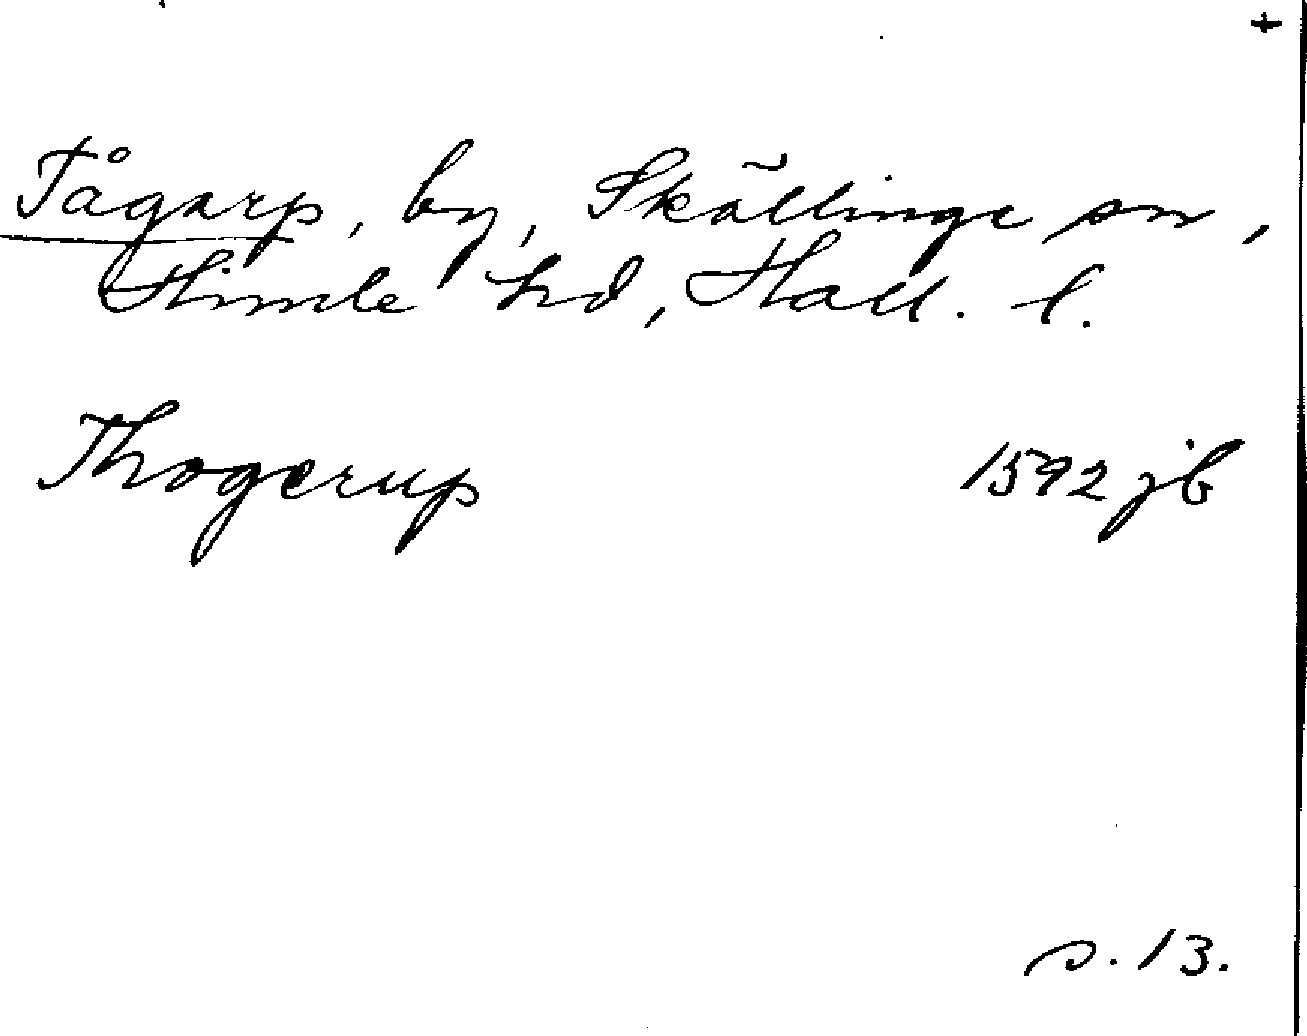 +
Tågarp, by, Skällinge sn,
Himle hd, Hall. l.
Thogerup 1592 jb
s. 13.